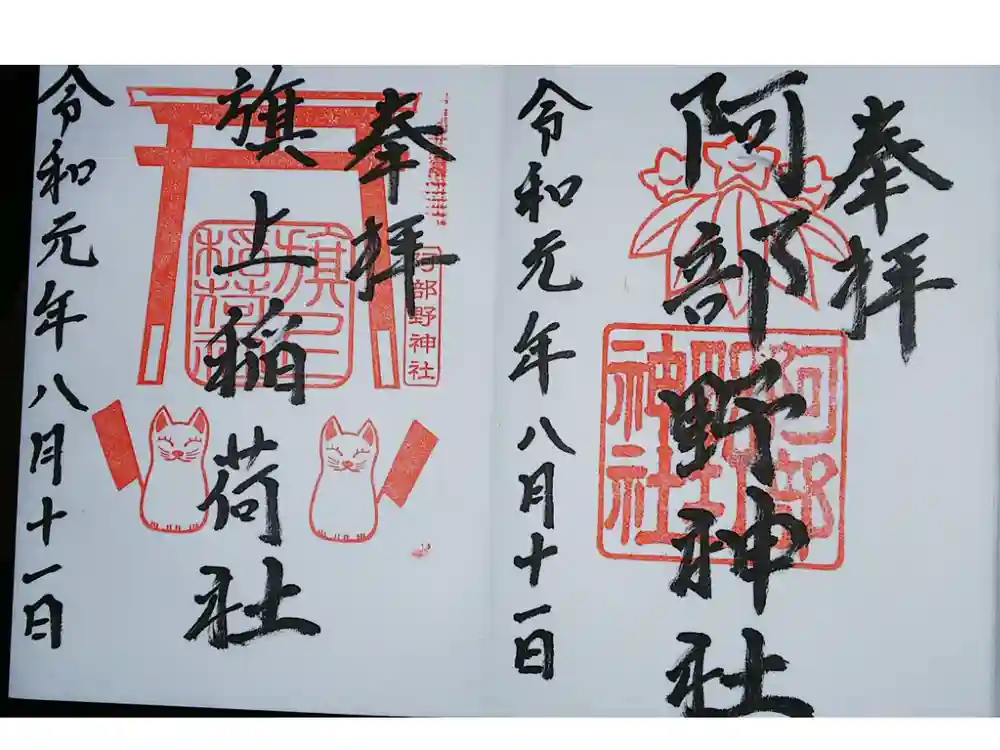 奉拝
阿部野神社
阿部野神社
令和元年八月十一日
奉拝
旗上稲荷社
旗上稲荷社
阿部野神社
令和元年八月十一日